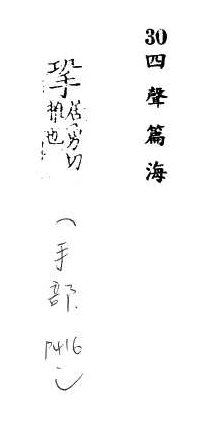 30四聲篇海
挐居勇切
推也
(手部 P416)